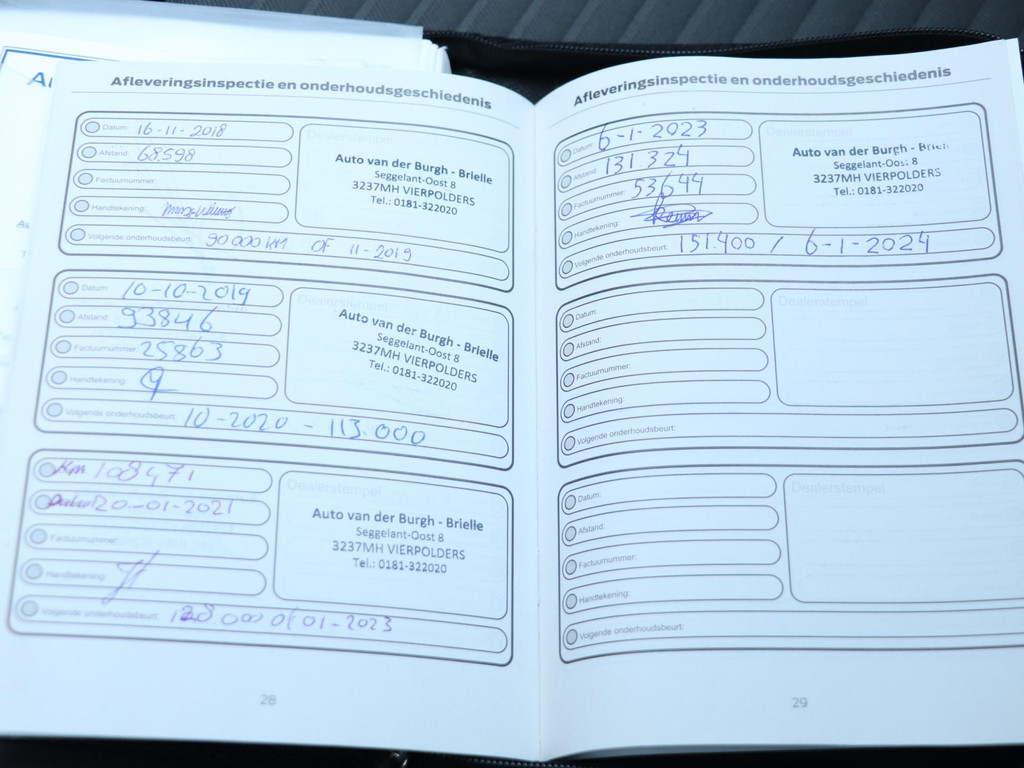 Afleveringsinspectie en onderhoudsgeschiedenis
Datum: 16-11-2018
Afstand: 68.598
Factuurnummer:
Handtekening:
Volgende onderhoudsbeurt: 90 000 KM OF 11-2019
Dealerstempel
Auto van der Burgh - Brielle
Seggelant-Oost 8
3237MH VIERPOLDERS
Tel.: 0181-322020
Datum: 10-10-2019
Afstand: 93846
Factuurnummer: 25863
Handtekening:
Volgende onderhoudsbeurt: 10-2020 - 113.000
Dealerstempel
Auto van der Burgh - Brielle
Seggelant-Oost 8
3237MH VIERPOLDERS
Tel.: 0181-322020
Km 108471
Datum 20-01-2021
Factuurnummer:
Handtekening:
Volgende onderhoudsbeurt: 128.000 of 01-2023
Dealerstempel
Auto van der Burgh - Brielle
Seggelant-Oost 8
3237MH VIERPOLDERS
Tel.: 0181-322020
28
Afleveringsinspectie en onderhoudsgeschiedenis
Datum: 6-1-2023
Afstand: 131.324
Factuurnummer: 53644
Handtekening:
Volgende onderhoudsbeurt: 151.400 / 6-1-2024
Dealerstempel
Auto van der Burgh - Brielle
Seggelant-Oost 8
3237MH VIERPOLDERS
Tel.: 0181-322020
Datum:
Afstand:
Factuurnummer:
Handtekening:
Volgende onderhoudsbeurt:
Dealerstempel
Datum:
Afstand:
Factuurnummer:
Handtekening:
Volgende onderhoudsbeurt:
Dealerstempel
29